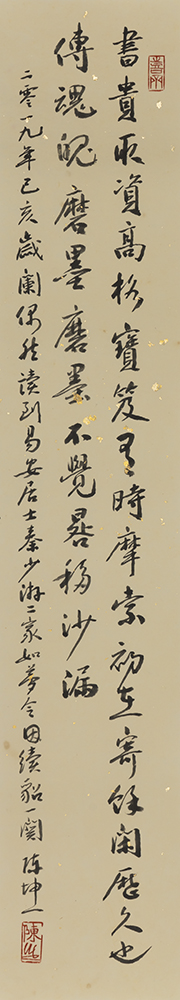 書貴取資高格寶笈有時摩索初且寄餘閑歷久也
傳魂魄磨墨磨墨不覺晷移沙漏
二零一九年己亥歲闌偶然讀到易安居士秦少游二家如夢令因續貂一闋 陳坤一